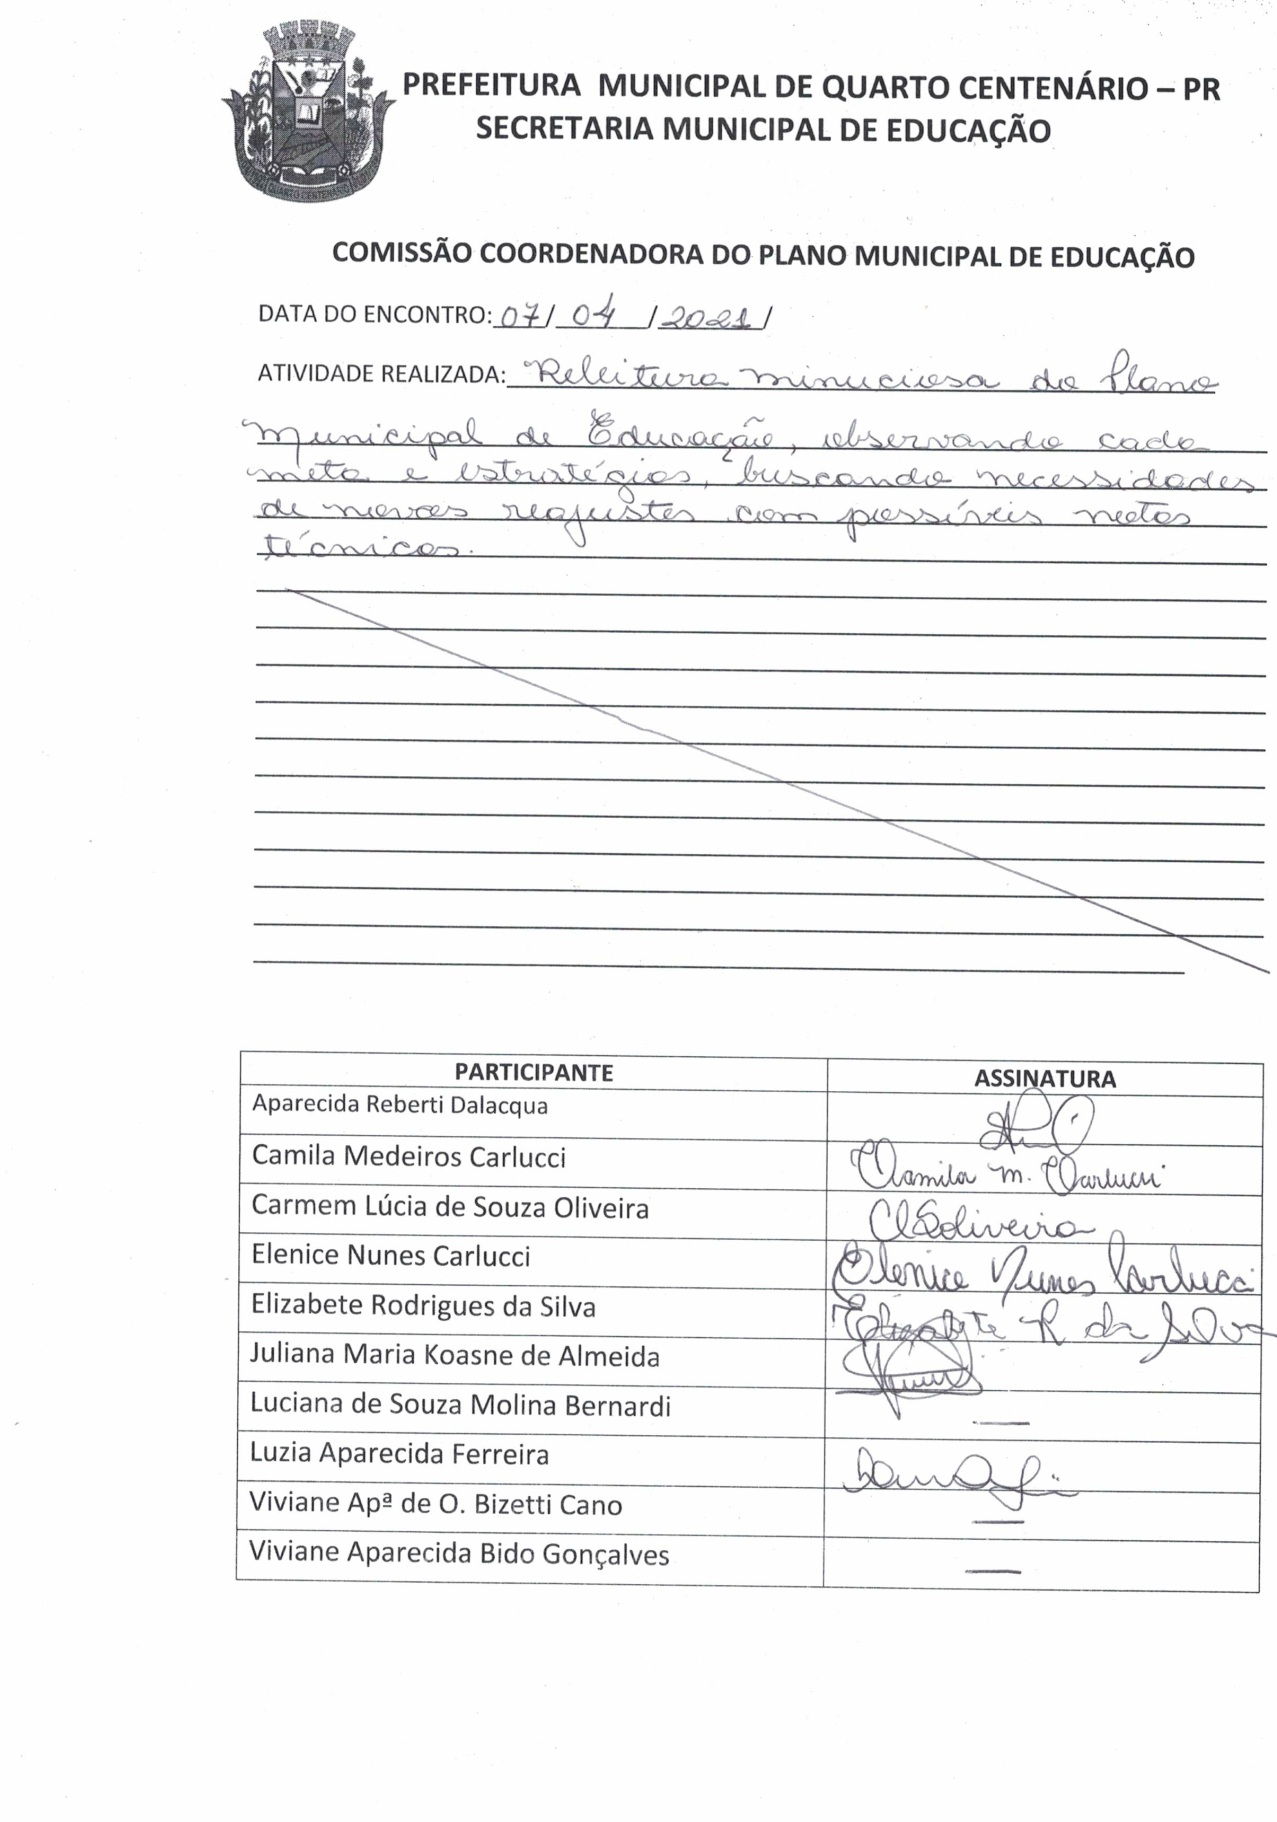 QUARTO CENTENÁRIO
PREFEITURA MUNICIPAL DE QUARTO CENTENÁRIO – PR
SECRETARIA MUNICIPAL DE EDUCAÇÃO
COMISSÃO COORDENADORA DO PLANO MUNICIPAL DE EDUCAÇÃO
DATA DO ENCONTRO: 07/ 04 /2021/
ATIVIDADE REALIZADA: Releitura minuciosa do Plano
Municipal de Educação, observando cada
meta e estratégias, buscando necessidades
de novos reajustes com possíveis notas
técnicas.
PARTICIPANTE ASSINATURA
Aparecida Reberti Dalacqua
Camila Medeiros Carlucci Camila M. Carlucci
Carmem Lúcia de Souza Oliveira CLSOliveira
Elenice Nunes Carlucci Elenice Nunes Carlucci
Elizabete Rodrigues da Silva Elizabete R da Silva
Juliana Maria Koasne de Almeida
Luciana de Souza Molina Bernardi —
Luzia Aparecida Ferreira
Viviane Apª de O. Bizetti Cano —
Viviane Aparecida Bido Gonçalves —